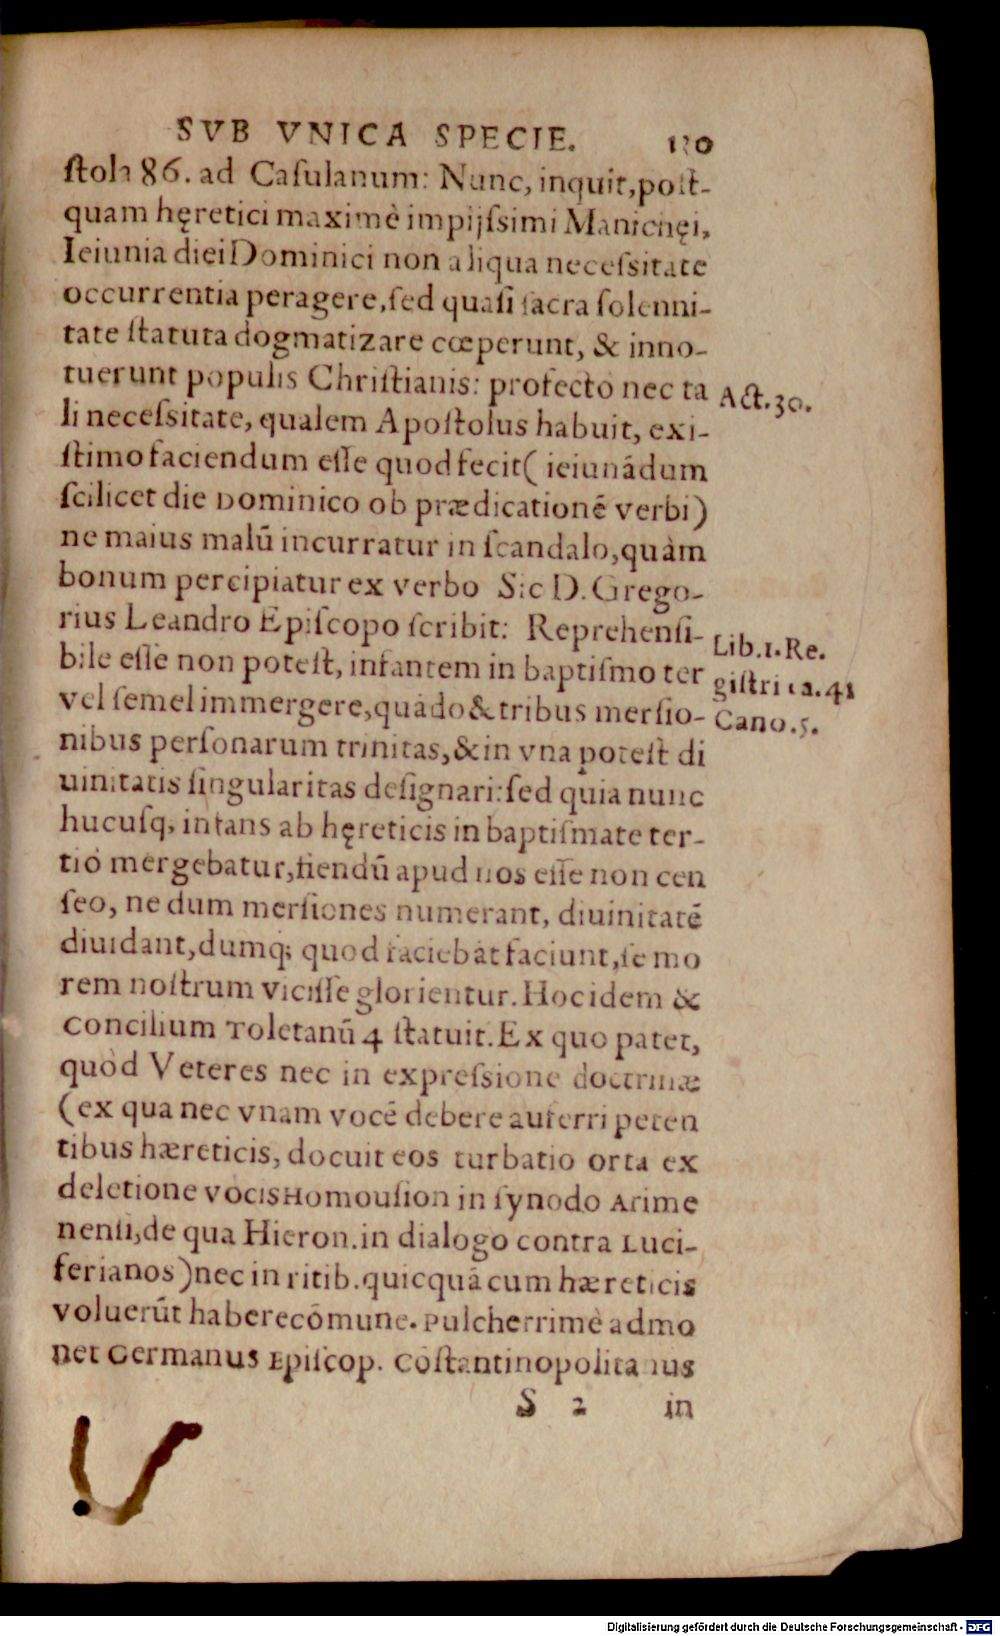 SVB VNICA SPECIE. 130
ſtola 86. ad Caſulanum: Nunc, inquit, poſt-
quam hęretici maximè impijſsimi Manichęi,
Ieiunia diei Dominici non aliqua neceſsitate
occurrentia peragere, ſed quaſi ſacra ſolenni-
tate ſtatuta dogmatizare cœperunt, & inno-
tuerunt populis Chriſtianis: profecto nec ta
li neceſsitate, qualem Apoſtolus habuit, exi-
ſtimo faciendum eſſe quod fecit (ieiunādum
ſcilicet die Dominico ob prædicationē verbi)
ne maius malū incurratur in ſcandalo, quàm
bonum percipiatur ex verbo Sic D. Grego-
rius Leandro Epiſcopo ſcribit: Reprehenſi-
bile eſſe non poteſt, infantem in baptiſmo ter
vel ſemel immergere, quādo & tribus merſio-
nibus perſonarum trinitas, & in vna poteſt di
uinitatis ſingularitas deſignari: ſed quia nunc
hucuſq; infans ab hęreticis in baptiſmate ter-
tiò mergebatur, fiendū apud nos eſſe non cen
ſeo, ne dum merſiones numerant, diuinitatē
diuidant, dumq; quod faciebāt faciunt, ſe mo
rem noſtrum viciſſe glorientur. Hoc idem &
Concilium Toletanū 4 ſtatuit. Ex quo patet,
quòd Veteres nec in expreſsione doctrinæ
(ex qua nec vnam vocē debere auferri peten
tibus hæreticis, docuit eos turbatio orta ex
deletione vocis Homouſion in ſynodo Arime
nenſi, de qua Hieron. in dialogo contra Luci-
ferianos) nec in ritib. quicquā cum hæreticis
voluerūt habere cōmune. Pulcherrimè admo
net Germanus Epiſcop. Cōſtantinopolitanus
S 2 in
Act. 30.
Lib. 1. Re.
giſtri ca. 41
Cano. 5.
Digitalisierung gefördert durch die Deutsche Forschungsgemeinschaft - DFG